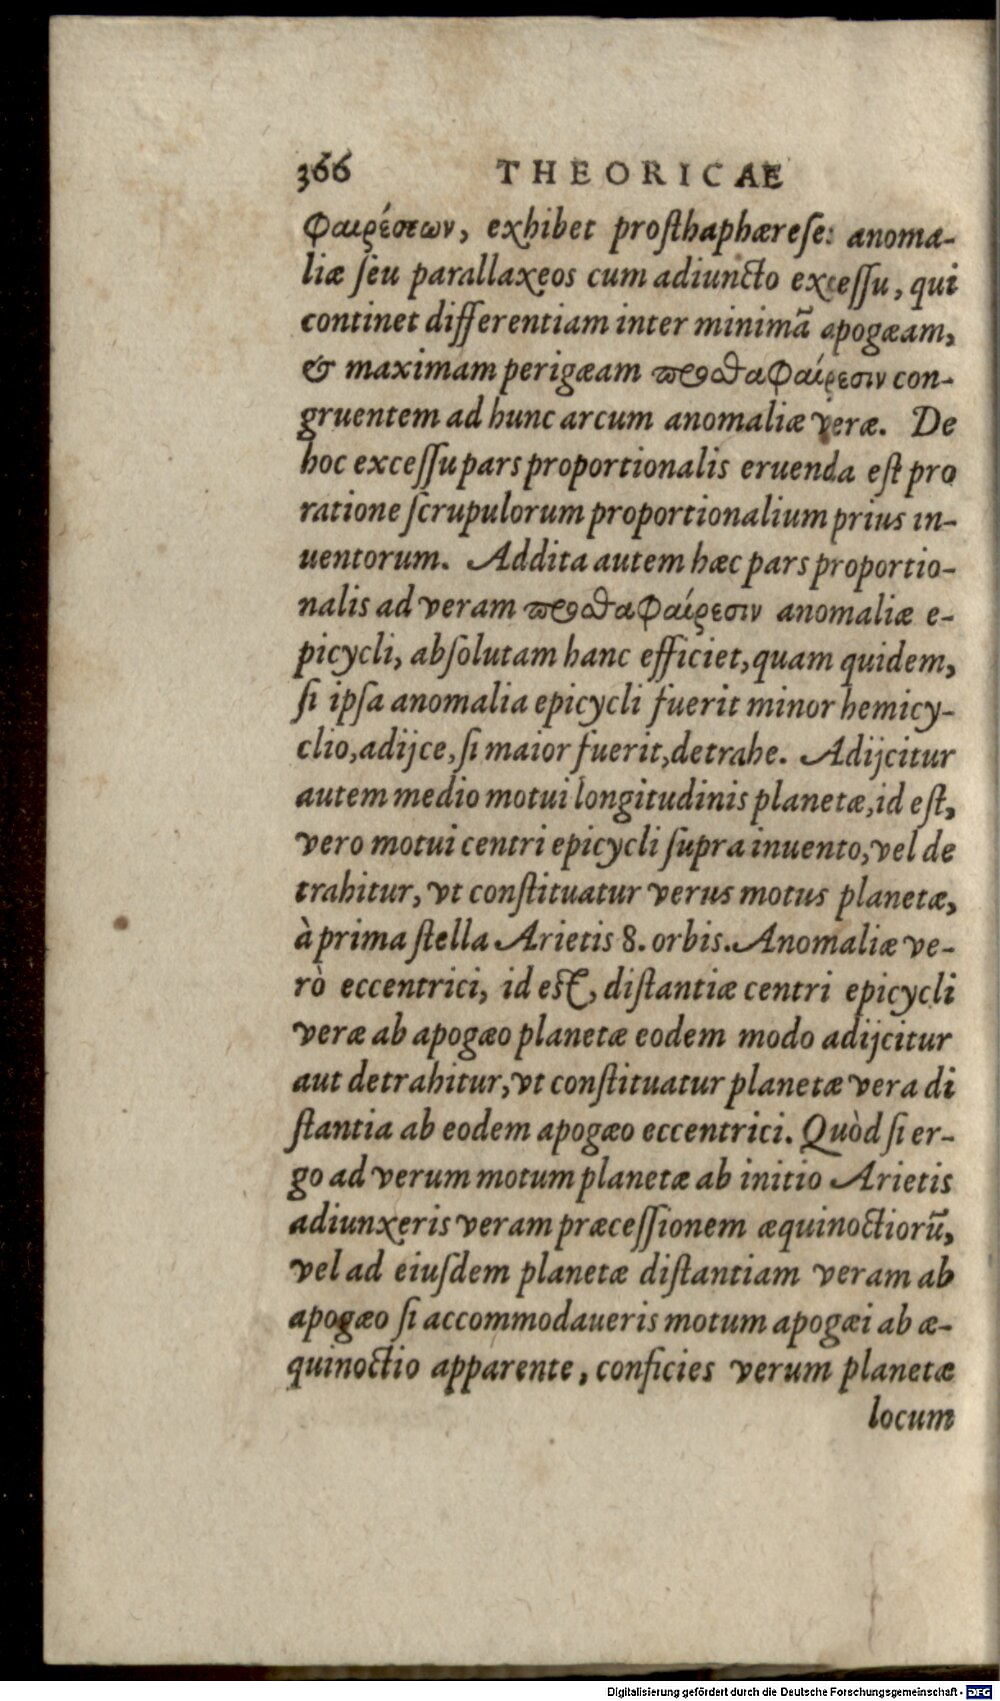 366 THEORICAE
φαιρέσεων, exhibet prosthaphærese: anoma-
liæ seu parallaxeos cum adiuncto excessu, qui
continet differentiam inter minimā apogæam,
& maximam perigæam προσθαφαίρεσιν con-
gruentem ad hunc arcum anomaliæ veræ. De
hoc excessu pars proportionalis eruenda est pro
ratione scrupulorum proportionalium prius in-
uentorum. Addita autem hæc pars proportio-
nalis ad veram προσθαφαίρεσιν anomaliæ e-
picycli, absolutam hanc efficiet, quam quidem,
si ipsa anomalia epicycli fuerit minor hemicy-
clio, adijce, si maior fuerit, detrahe. Adijcitur
autem medio motui longitudinis planetæ, id est,
vero motui centri epicycli supra inuento, vel de
trahitur, vt constituatur verus motus planetæ,
à prima stella Arietis 8. orbis. Anomaliæ ve-
rò eccentrici, id est, distantiæ centri epicycli
veræ ab apogæo planetæ eodem modo adijcitur
aut detrahitur, vt constituatur planetæ vera di
stantia ab eodem apogæo eccentrici. Quòd si er-
go ad verum motum planetæ ab initio Arietis
adiunxeris veram præcessionem æquinoctiorū,
vel ad eiusdem planetæ distantiam veram ab
apogæo si accommodaueris motum apogæi ab æ-
quinoctio apparente, conficies verum planetæ
locum
Digitalisierung gefördert durch die Deutsche Forschungsgemeinschaft - DFG